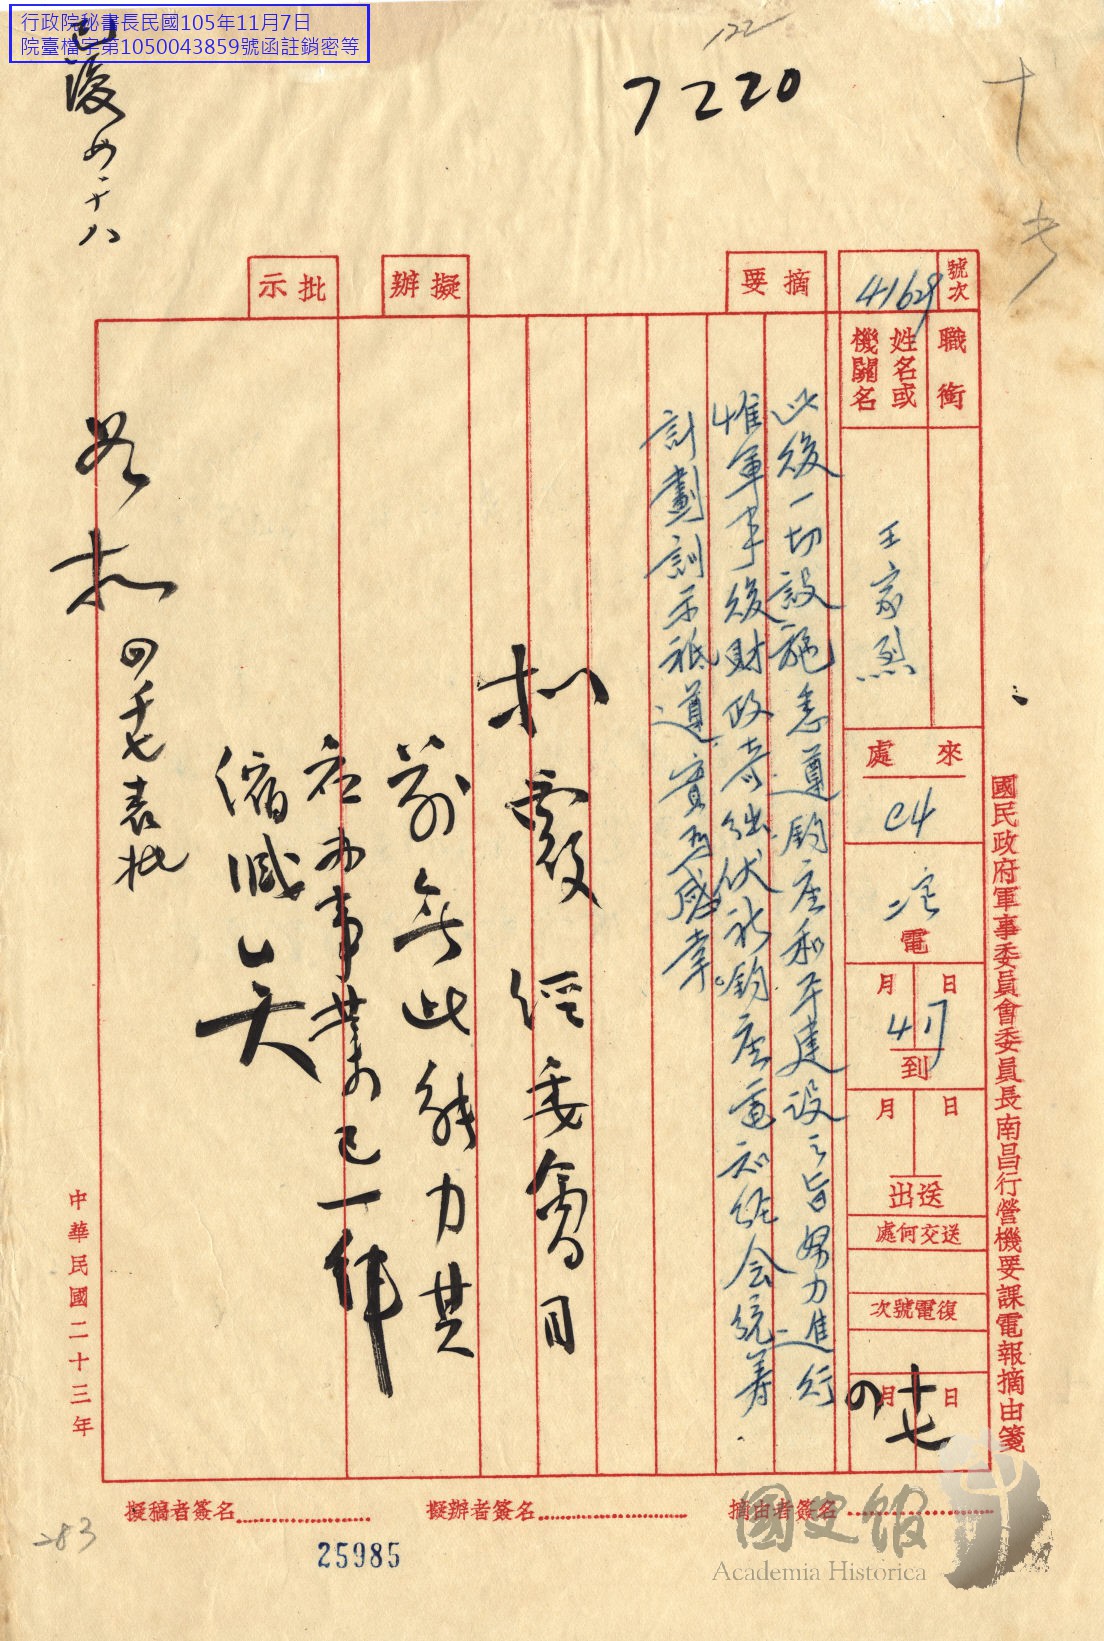 行政院秘書長民國105年11月7日
院臺檔字第1050043859號函註銷密等
已復 四十八
122
7220
國民政府軍事委員會委員長南昌行營機要課電報摘由箋
號次
41629
職銜
姓名或機關名
王家烈
來處
電
月
日
到
月
日
送出
送交何處
復電號次
月
日
四
十七
摘要
此後一切設施悉遵鈞座和平建設之旨努力進行
惟軍事後財政奇絀伏祈鈞座電知經会統筹
計劃訓示祗遵實為感幸
擬辦
擬覆經委會目
前無此能力其
應办事業已一律
縮減矣
批示
如擬
四十七 表批
中華民國二十三年
擬稿者簽名
擬辦者簽名
摘由者簽名
283
25985
國史館
Academia Historica